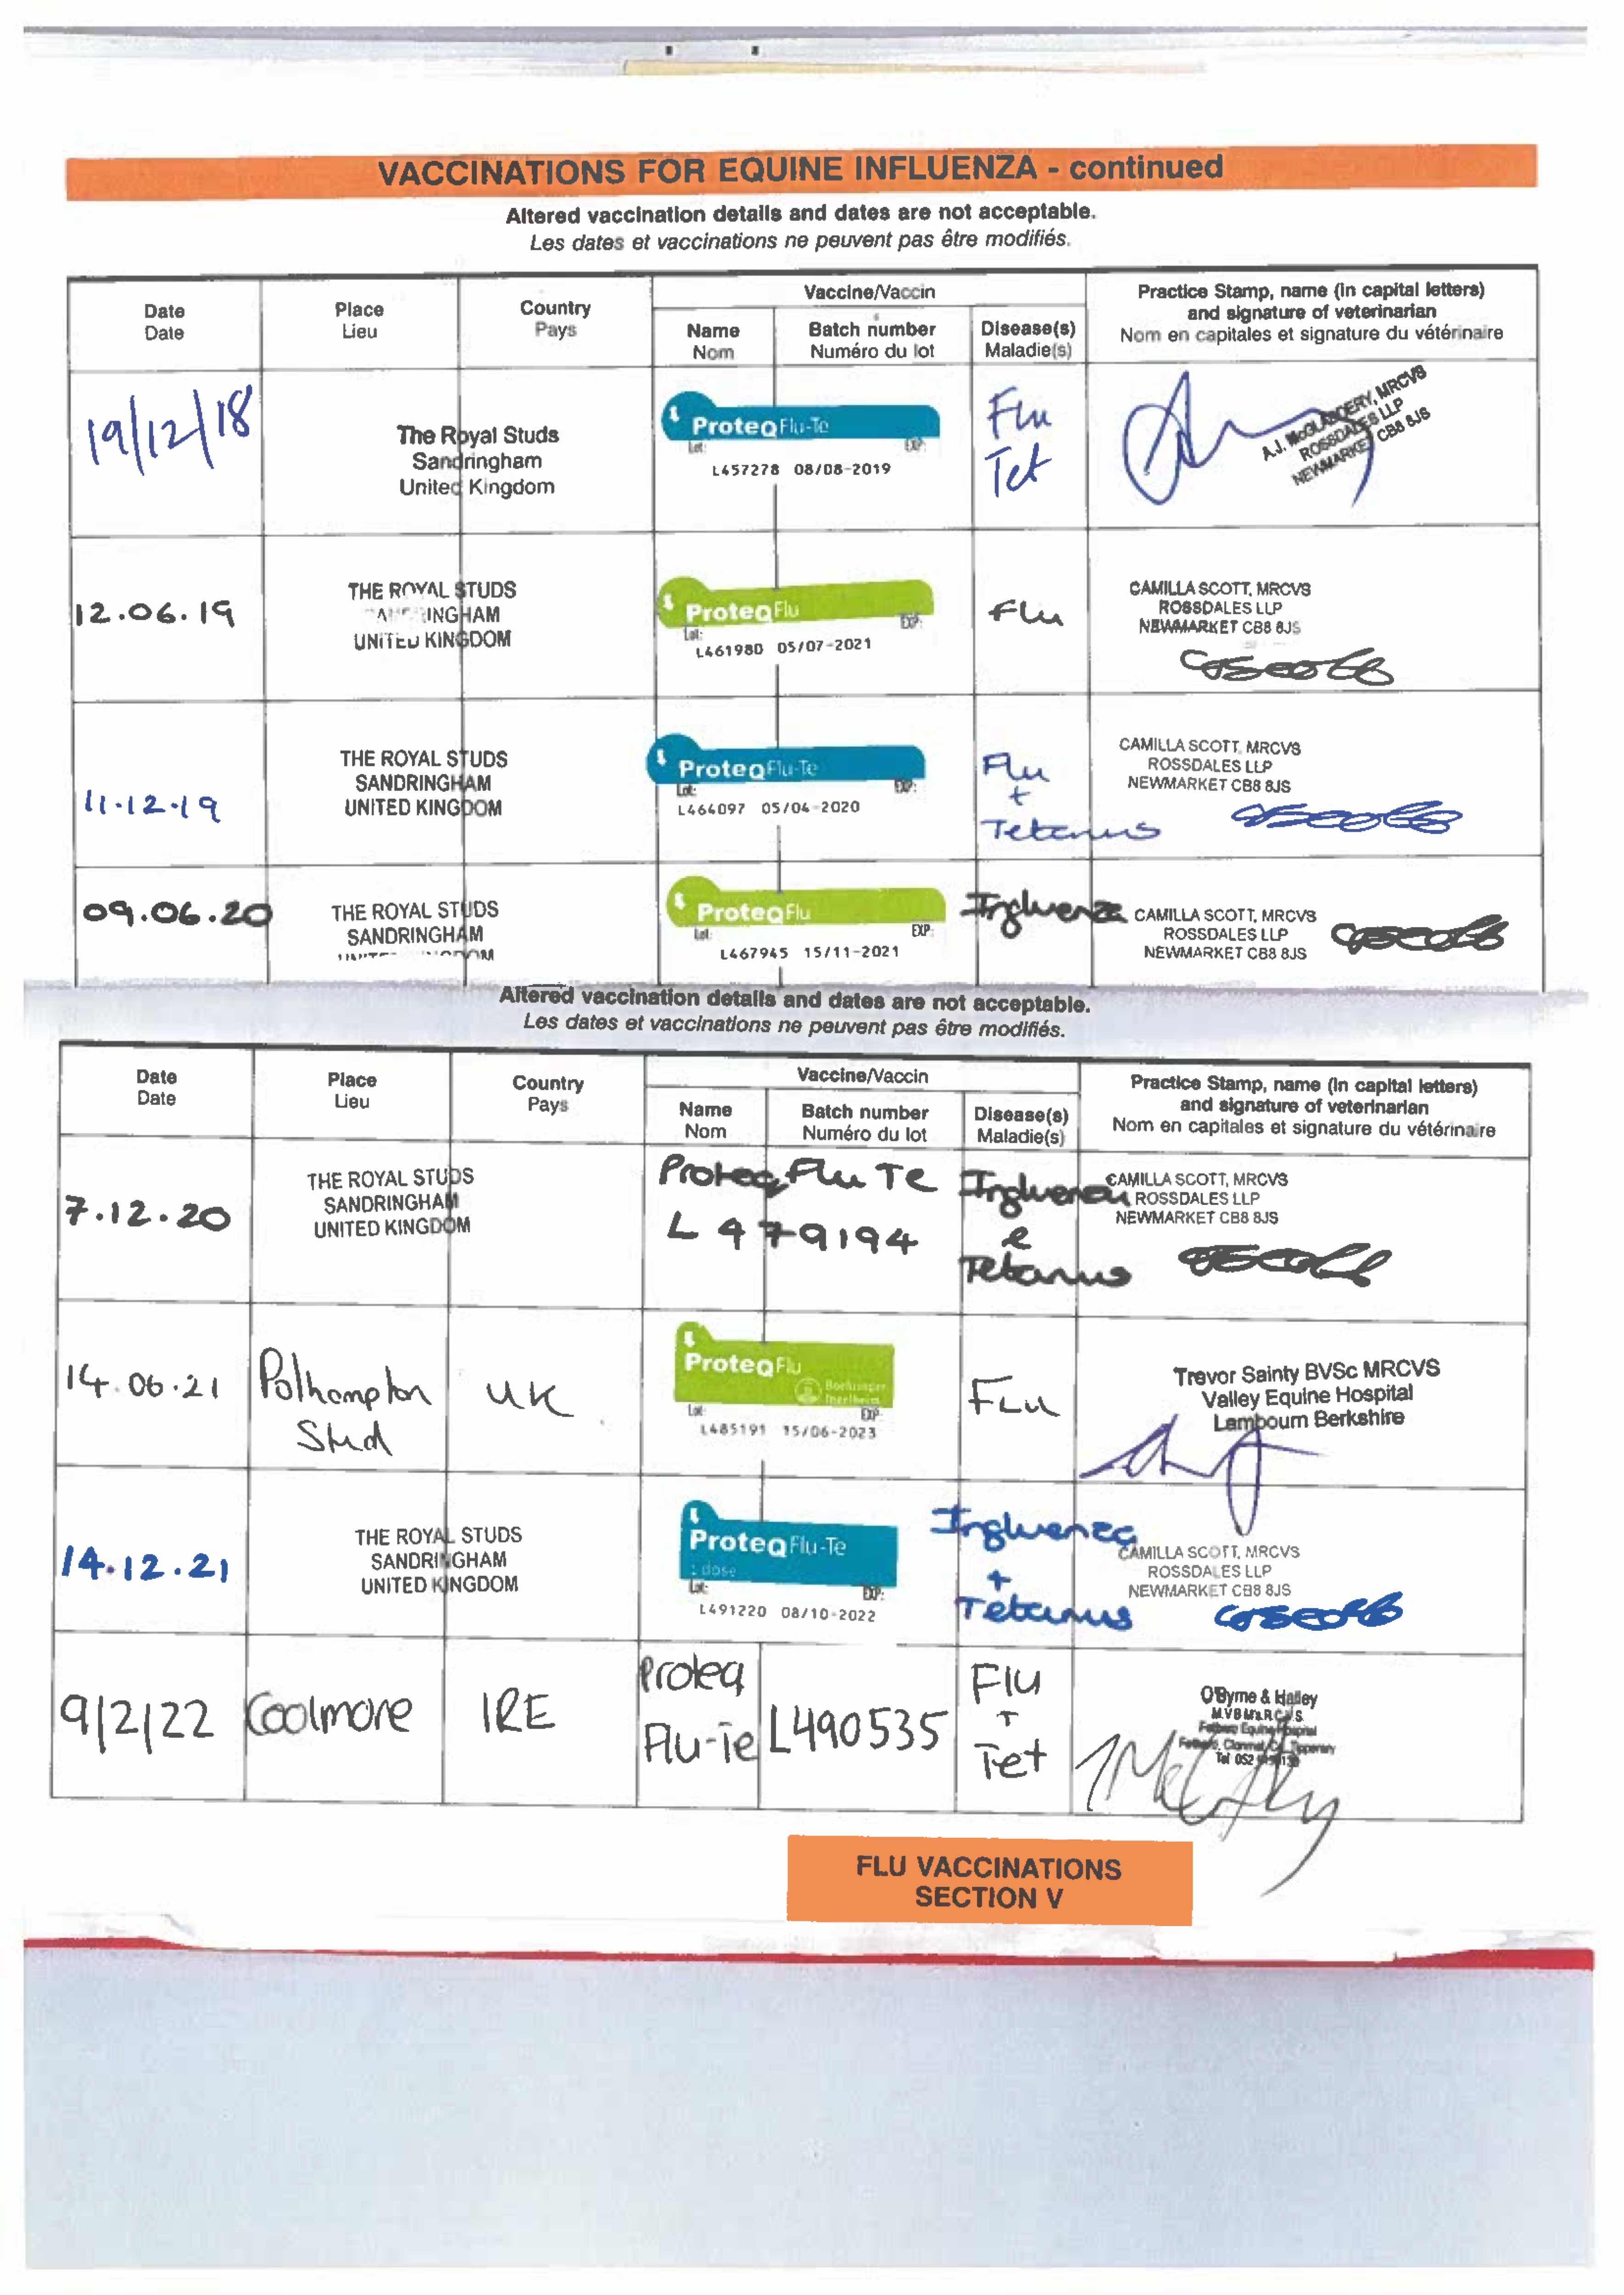 VACCINATIONS FOR EQUINE INFLUENZA - continued
Altered vaccination details and dates are not acceptable.
Les dates et vaccinations ne peuvent pas être modifiés.
Date
Date
Place
Lieu
Country
Pays
Vaccine/Vaccin
Name
Nom
Batch number
Numéro du lot
Disease(s)
Maladie(s)
Practice Stamp, name (in capital letters)
and signature of veterinarian
Nom en capitales et signature du vétérinaire
19/12/18
The Royal Studs
Sandringham
United Kingdom
ProteqFlu-Te
Lot: EXP:
L457278 08/08-2019
Flu
Tet
A.J. McGLADDERY, MRCVS
ROSSDALES LLP
NEWMARKET CB8 8JS
12.06.19
THE ROYAL STUDS
INGHAM
UNITED KINGDOM
ProteqFlu
Lot: EXP:
L461980 05/07-2021
Flu
CAMILLA SCOTT, MRCVS
ROSSDALES LLP
NEWMARKET CB8 8JS
11.12.19
THE ROYAL STUDS
SANDRINGHAM
UNITED KINGDOM
ProteqFlu-Te
Lot: EXP:
L464097 05/04-2020
Flu
+
Tetanus
CAMILLA SCOTT, MRCVS
ROSSDALES LLP
NEWMARKET CB8 8JS
09.06.20
THE ROYAL STUDS
SANDRINGHAM
ProteqFlu
Lot: EXP:
L467945 15/11-2021
Influenza
CAMILLA SCOTT, MRCVS
ROSSDALES LLP
NEWMARKET CB8 8JS
Altered vaccination details and dates are not acceptable.
Les dates et vaccinations ne peuvent pas être modifiés.
Date
Date
Place
Lieu
Country
Pays
Vaccine/Vaccin
Name
Nom
Batch number
Numéro du lot
Disease(s)
Maladie(s)
Practice Stamp, name (in capital letters)
and signature of veterinarian
Nom en capitales et signature du vétérinaire
7.12.20
THE ROYAL STUDS
SANDRINGHAM
UNITED KINGDOM
Proteq Flu TE
L479194
Influenza
e
Tetanus
CAMILLA SCOTT, MRCVS
ROSSDALES LLP
NEWMARKET CB8 8JS
14.06.21
Polhampton
Stud
UK
ProteqFlu
Boehringer
Ingelheim
Lot: EXP:
L485191 15/06-2023
FLu
Trevor Sainty BVSc MRCVS
Valley Equine Hospital
Lambourn Berkshire
14.12.21
THE ROYAL STUDS
SANDRINGHAM
UNITED KINGDOM
ProteqFlu-Te
1 dose
Lot: EXP:
L491220 08/10-2022
Influenza
+
Tetanus
CAMILLA SCOTT, MRCVS
ROSSDALES LLP
NEWMARKET CB8 8JS
9/2/22
Coolmore
IRE
Proteq
Flu-Te
L490535
Flu
+
Tet
O'Byrne & Halley
Fethard Equine Hospital
Fethard, Clonmel, Co. Tipperary
Tel 052
FLU VACCINATIONS
SECTION V